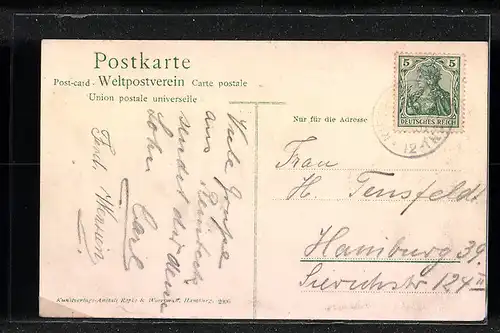 Postkarte
Post-card - Weltpostverein Carte postale
Union postale universelle
Nur für die Adresse
5 5
DEUTSCHES REICH
Frau
H. Tensfeldt
Hamburg 39.
Sierichstr 124 II
Viele Grüße
aus Reinbeck
sendet dir dein
Sohn Carl
Ferd.
Kunstverlags-Anstalt Röpke & Woortman, Hamburg.